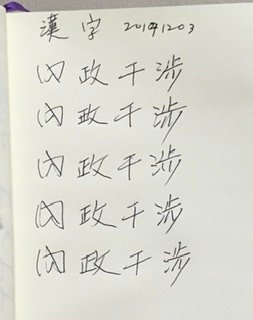 漢字 20141203
内政干渉
内政干渉
内政干渉
内政干渉
内政干渉